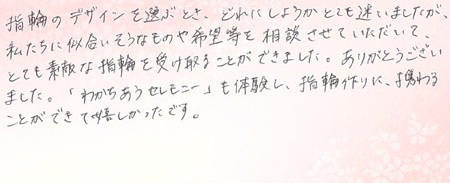 指輪のデザインを選ぶとき、どれにしようかとても迷いましたが、
私たちに似合いそうなものや希望等を相談させていただいて、
とても素敵な指輪を受け取ることができました。ありがとうござい
ました。「わかちあうセレモニー」も体験し、指輪作りに、携わる
ことができて嬉しかったです。